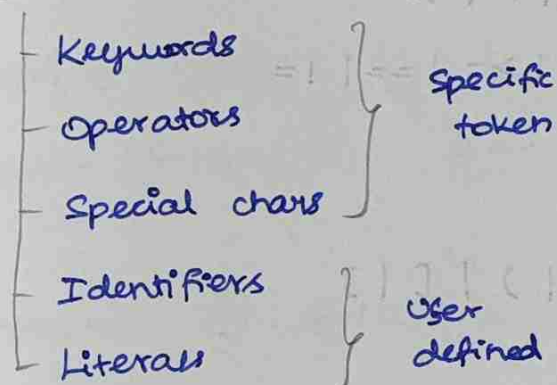 Keywords
Operators
Special chars
Specific
token
Identifiers
Literals
User
defined